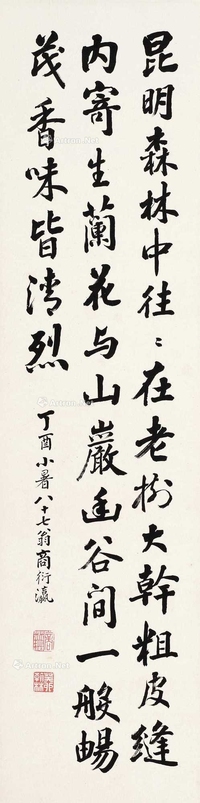 昆明森林中往〻在老树大幹粗皮縫
内寄生蘭花与山巖幽谷间一般暢
茂香味皆清烈
丁酉小暑八十七翁商衍瀛